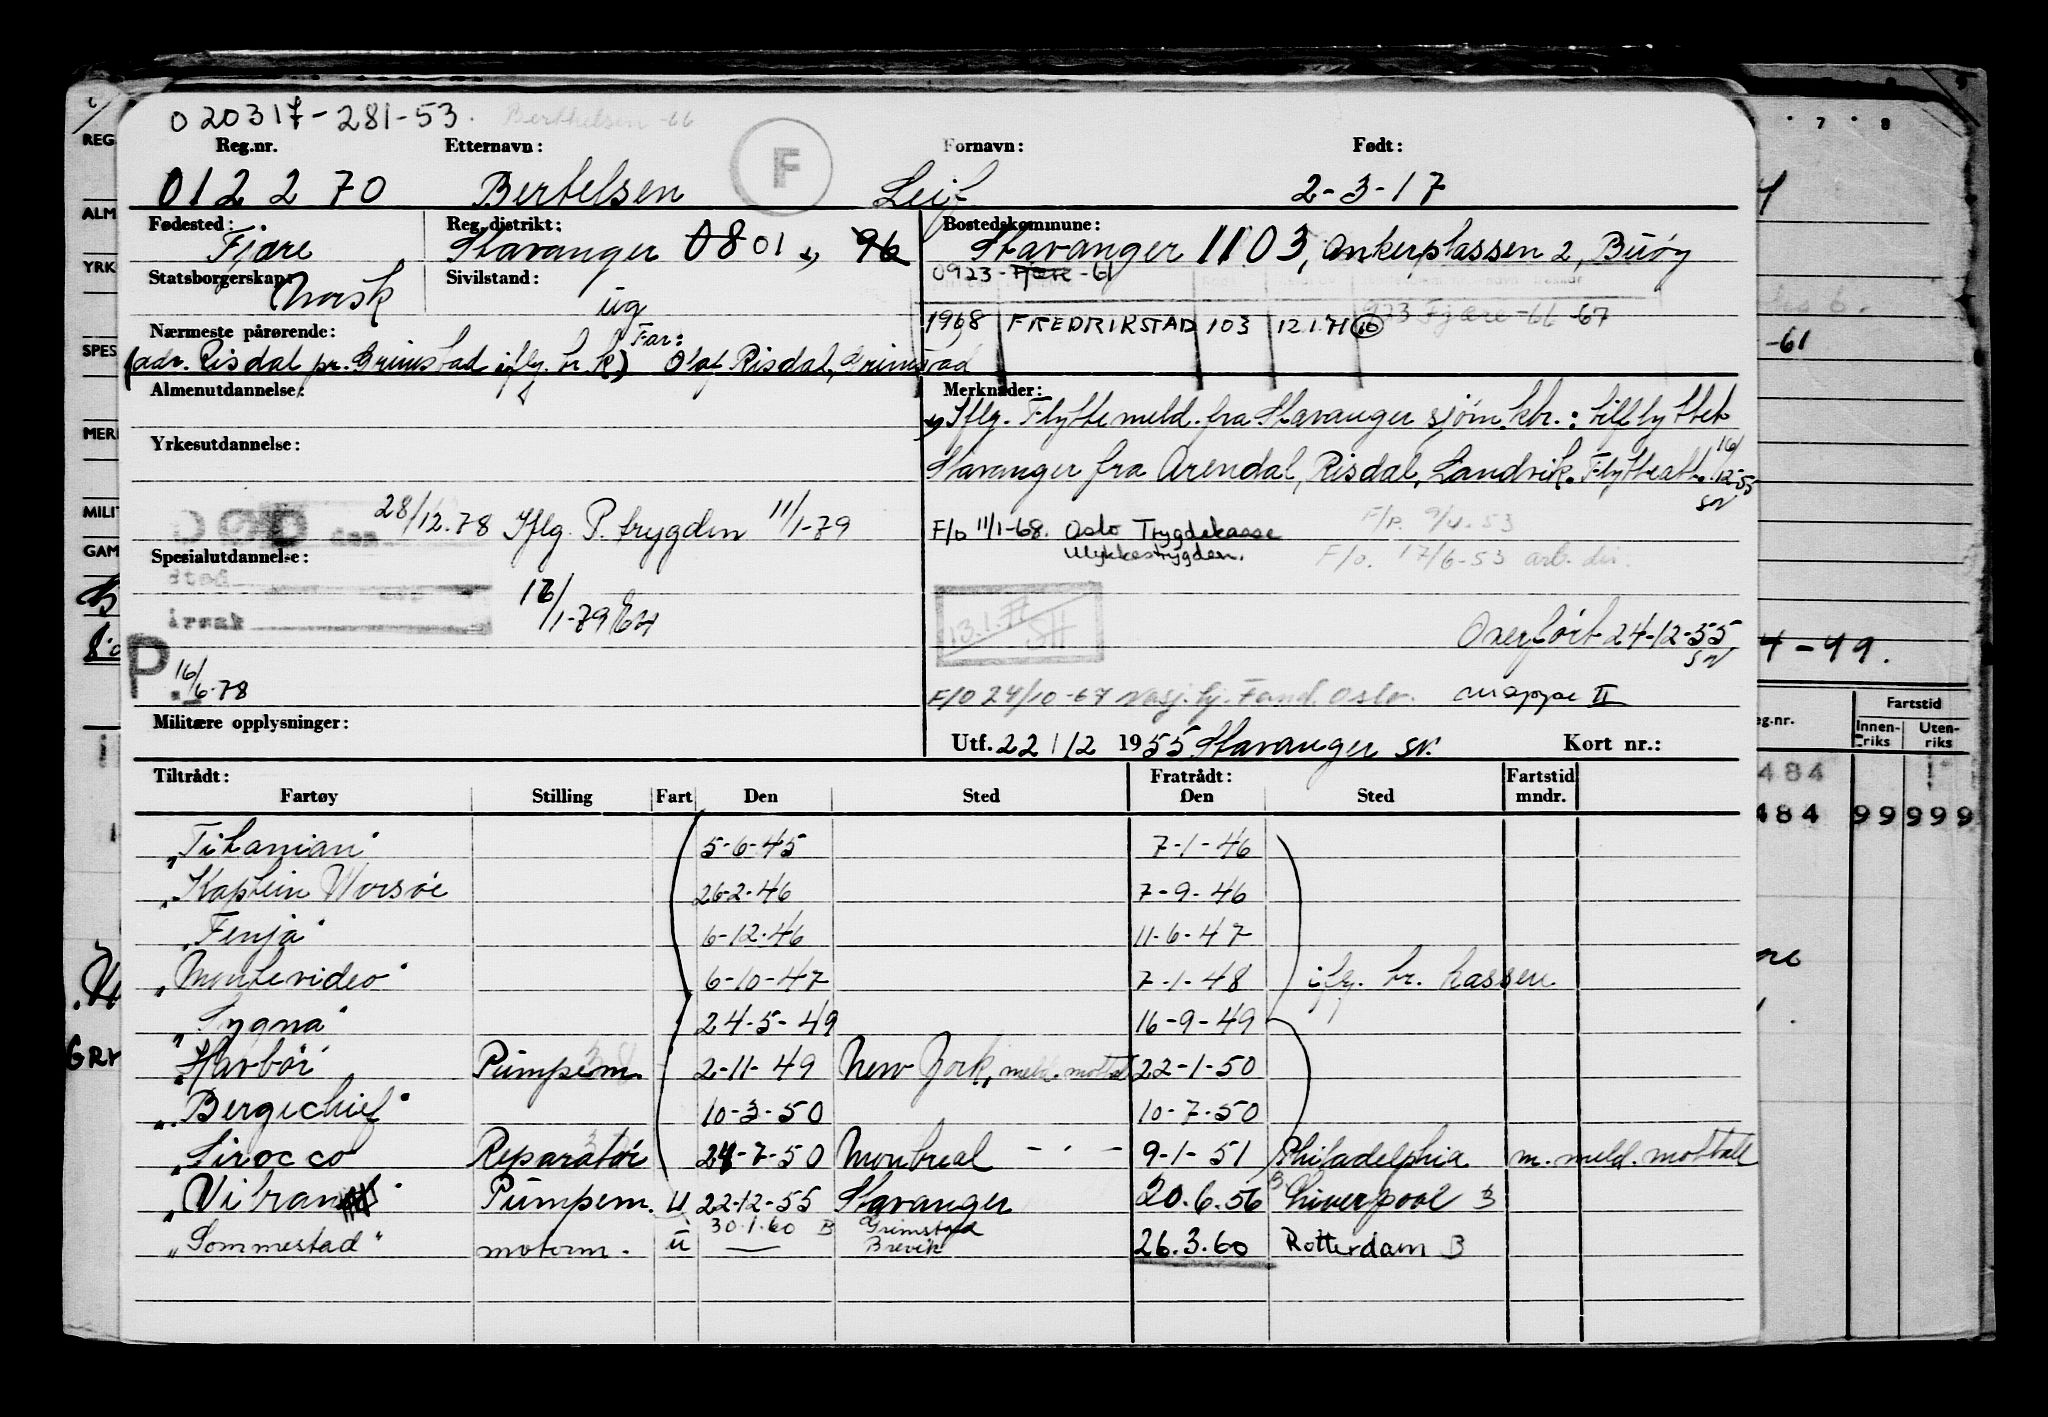 020317-281-53. Berthelsen -66
Reg.nr. Etternavn: F Fornavn: Født:
012270 Bertelsen Leif 2-3-17
Fødested: Reg. distrikt: Bostedskommune:
Fjære Stavanger 08 01 96 Stavanger 1103, Ankerplassen 2, Buøy
Statsborgerskap: Sivilstand: 0923 - Fjære - 61
Norsk ug
1968 FREDRIKSTAD 103 12.1.71 923 Fjære -66 -67
Nærmeste pårørende: Far:
(adr. Risdal pr. Grimstad iflg. h.k) Olaf Risdal, Grimstad
Almenutdannelse: Merknader:
Iflg. Flyttemeld. fra Stavanger sjøm.ktr.: tilflyttet
Yrkesutdannelse:
Stavanger fra Arendal, Risdal, Landvik. Flytteatt. 16/12-55 SN
DØD den 28/12.78 Iflg. P. trygden 11/1-79
F/o 11/1-68. Oslo Trygdekasse F/P. 9/4.53
Ulykkestrygden. F/o. 17/6-53 arb. dir.
Spesialutdannelse:
sted
årsak 1-79
13.1.71 SH
Overført 24-12-55 SN
P. 16/6-78
F/O 24/10-67 Oslo. mappe II
Militære opplysninger:
Utf. 22/12 1955 Stavanger sv. Kort nr.:
Tiltrådt: Fratrådt: Fartstid
Fartøy Stilling Fart Den Sted Den Sted mndr.
"Titanian" 5-6-45 7-1-46
"Kaptein Worsøe 26-2-46 7-9-46
"Fenja" 6-12-46 11-6-47
"Montevideo" 6-10-47 7-1-48 iflg. br. kassen
"Sygna" 24-5-49 16-9-49
"Havbör Pumpem. 2-11-49 New York, meld. mottatt 22-1-50
"Bergechief" 10-3-50 10-7-50
"Sirocco Reparatør 24-7-50 Montreal - " - 9-1-51 Philadelphia m. meld. mottatt
"Vibran" Pumpem. U 22-12-55 Stavanger 20.6.56 Liverpool B
"Sommestad" motorm. U 30.1.60 B Grimstad Brevik 26.3.60 Rotterdam B
REG
ALM
YRK
SPES
MERK
MILIT
GAM
7 8
-61
4-49.
Fartstid
eg.nr. Innenriks Utenriks
484
484 99 999